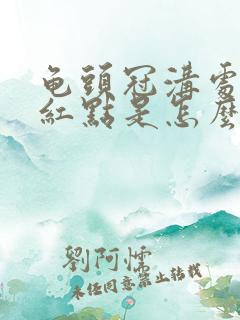 龟頭冠溝處
紅點是怎麽
劉阿懦
未经同意禁止转载